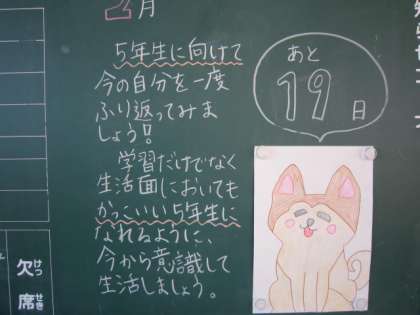 2月
5年生に向けて
今の自分を一度
ふり返ってみま
しょう!
学習だけでなく
生活面においても
かっこいい5年生に
なれるように、
今から意識して
生活しましょう。
あと
19日
欠席
けっせき